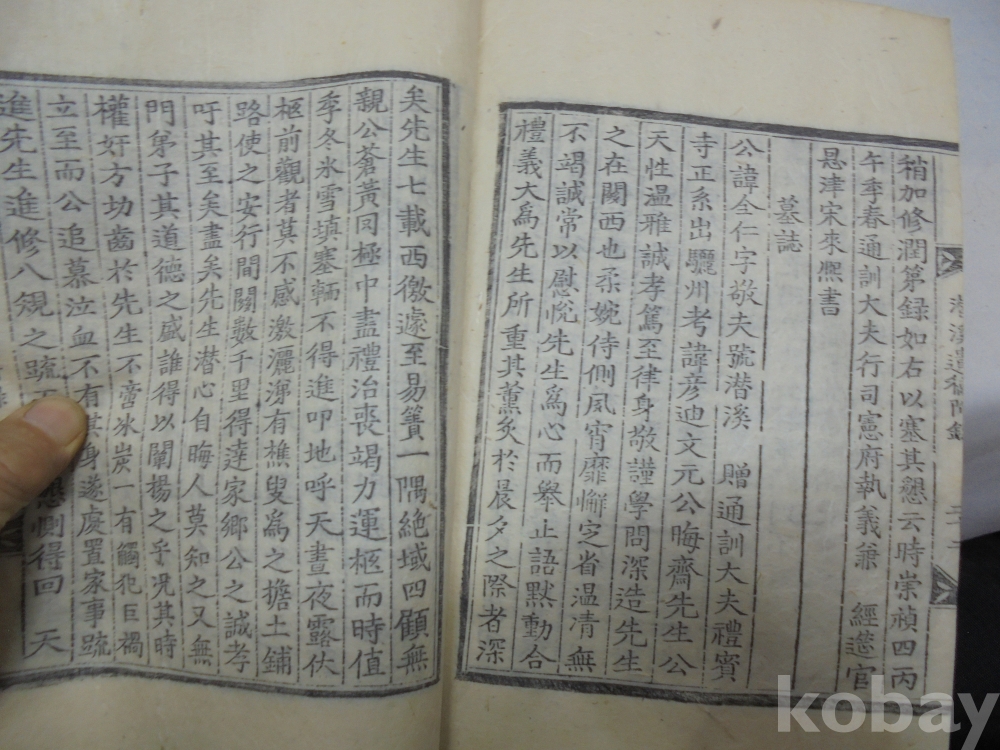 稍加修潤第録如右以塞其懇云時崇禎四丙
午季春通訓大夫行司憲府執義兼 經筵官
恩津宋來熙書
墓誌
公諱全仁字敬夫號潜溪 贈通訓大夫禮賓
寺正系出驪州考諱彦迪文元公晦齋先生公
天性温雅誠孝篤至律身敬謹學問深造先生
之在關西也柔婉侍側夙宵靡懈定省温凊無
不竭誠常以慰悅先生爲心而舉止語默動合
禮義大爲先生所重其薰炙於晨夕之際者深
矣先生七載西徼遽至易簀一隅絶域四顧無
親公蒼黃罔極中盡禮治喪竭力運柩而時值
季冬氷雪塡塞輀不得進叩地呼天晝夜露伏
柩前觀者莫不感激灑涕有樵叟爲之擔土鋪
路使之安行間關數千里得達家鄉公之誠孝
吁其至矣盡矣先生潜心自晦人莫知之又無
門弟子其道德之盛誰得以闡揚之乎况其時
權奸方切齒於先生不啻冰炭一有觸犯巨禍
立至而公追慕泣血不有其身遂處置家事䟽
進先生進修八規之䟽 懇惻得回 天
kobay